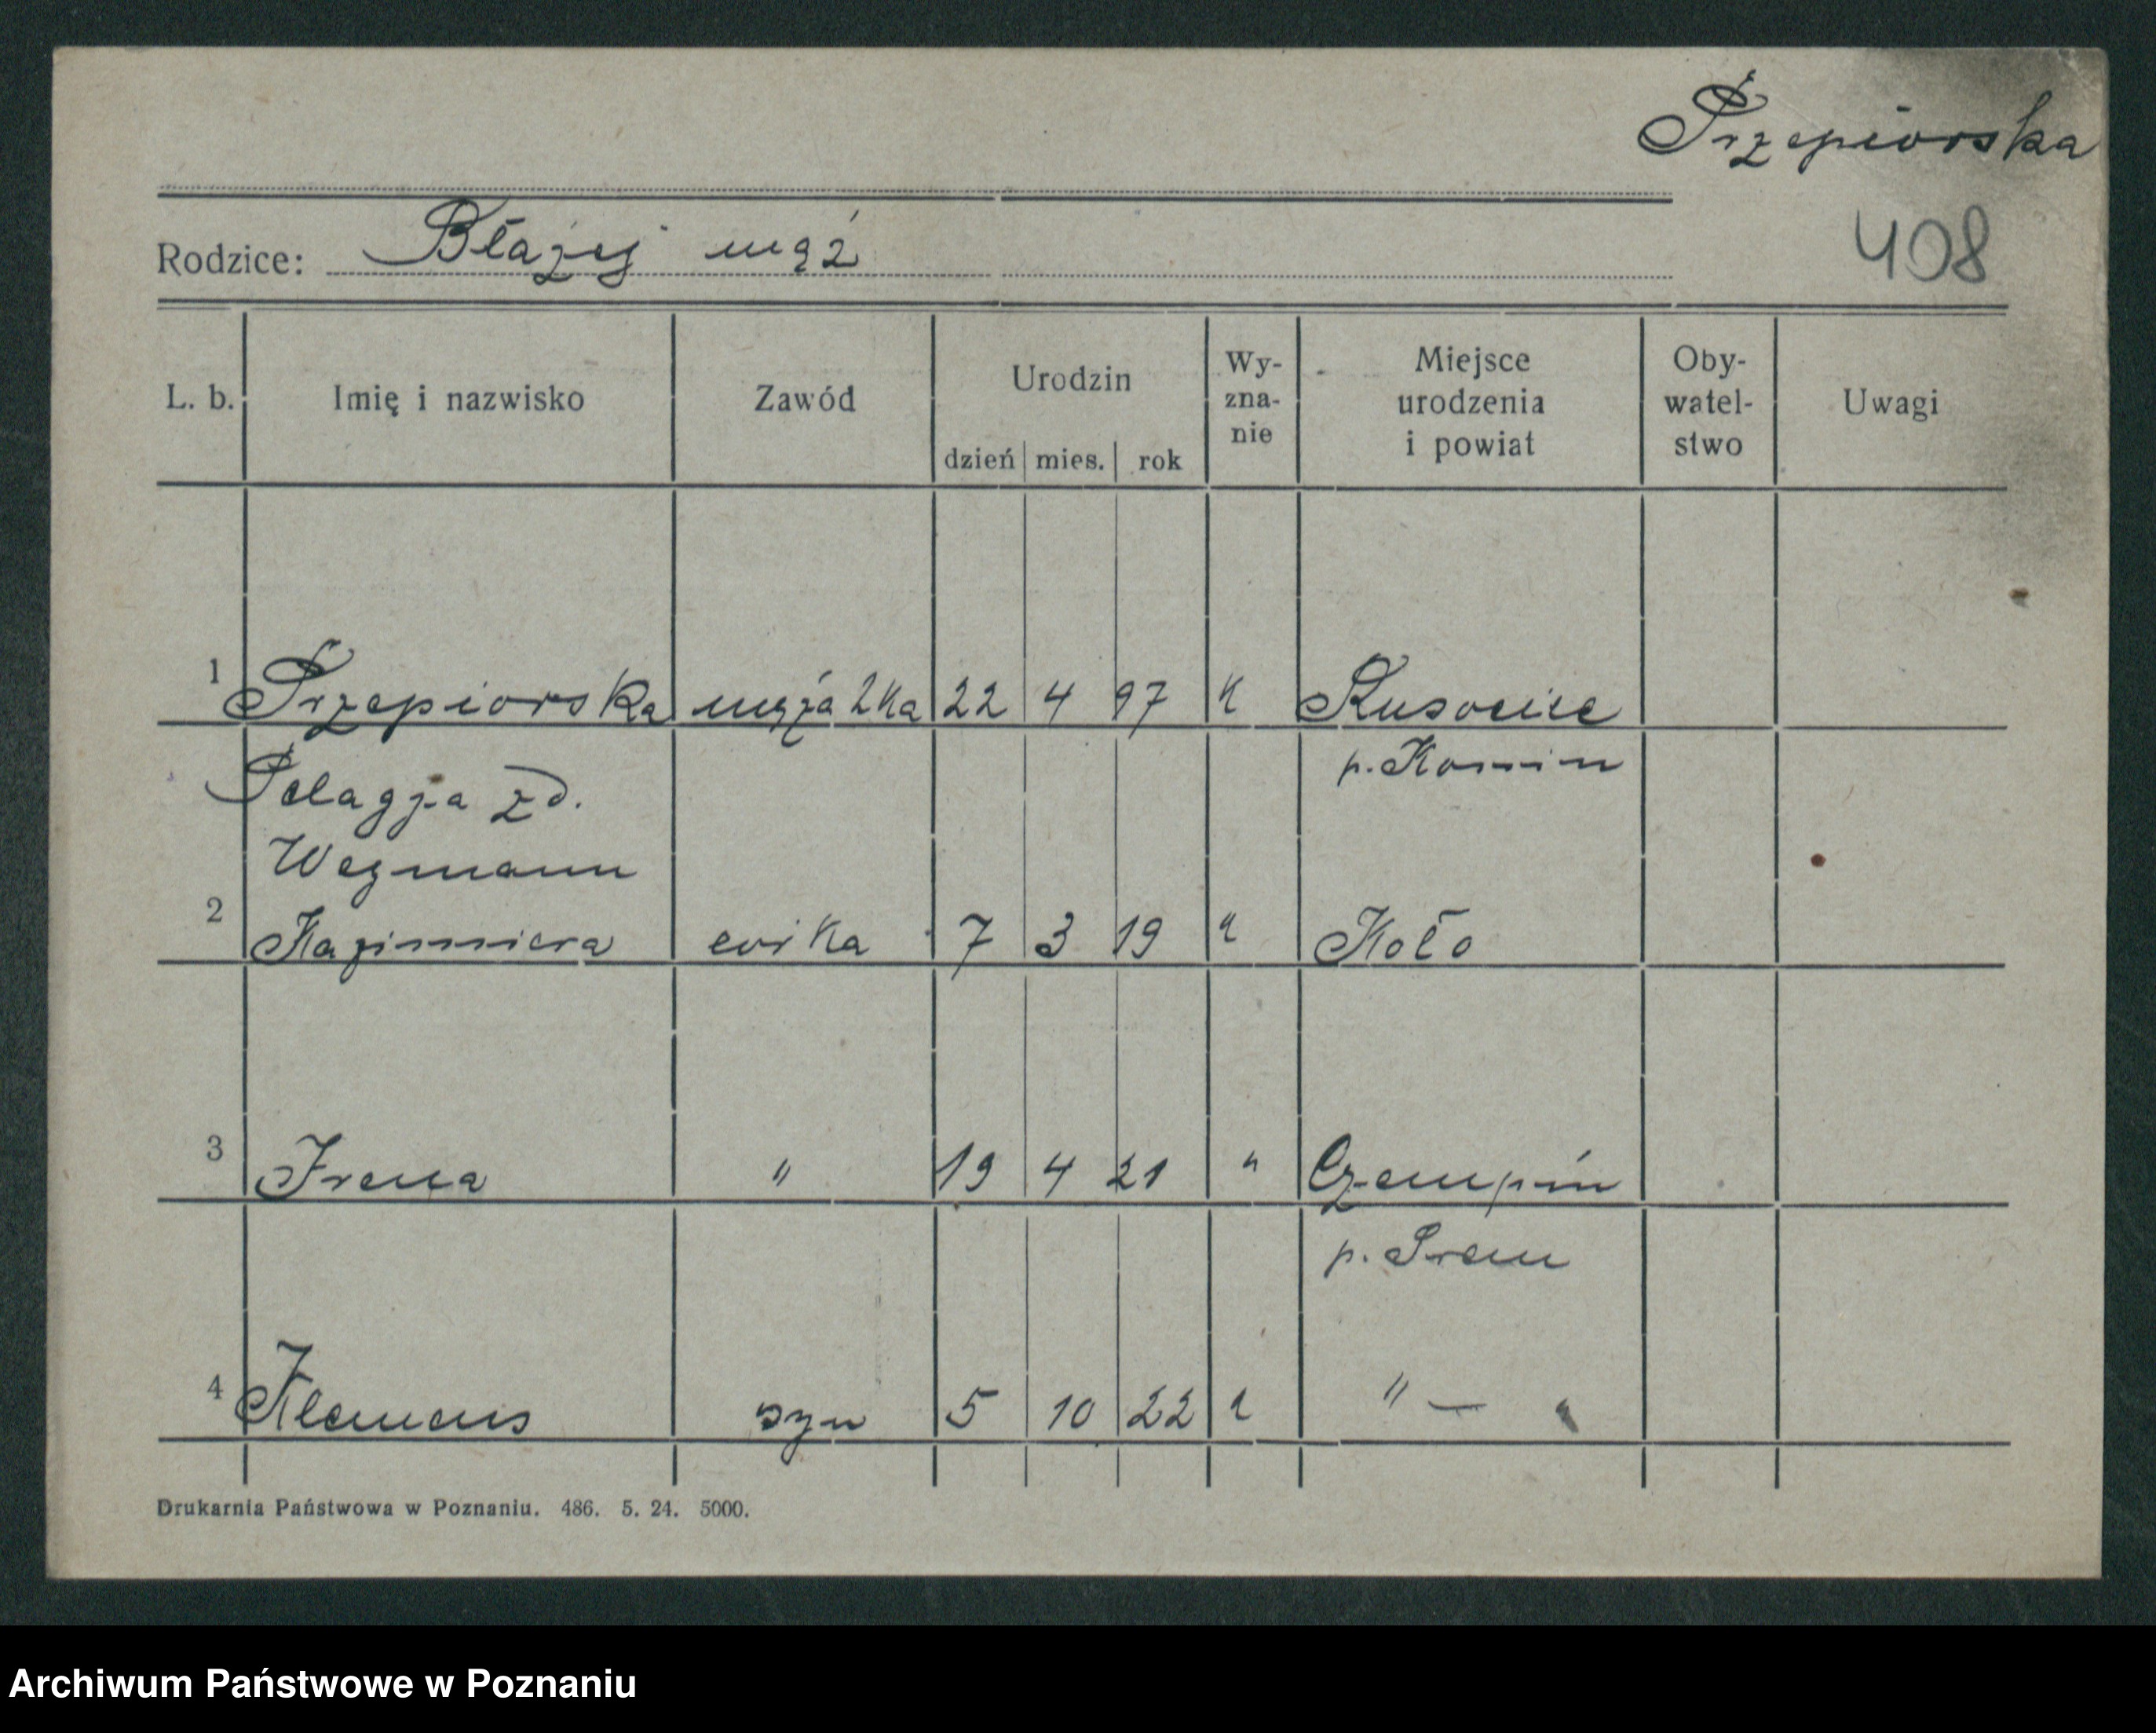 Przepiorska
Rodzice: Błażej mąż
408
L. b. Imię i nazwisko Zawód Urodzin dzień mies. rok Wy-zna-nie Miejsce urodzenia i powiat Oby-watel-stwo Uwagi
1 Przepiorska mężatka 22 4 97 K
p. Konin
Pelagja zd.
Wegmann
2 Kazimiera córka 7 3 19 " Koło
3 Irena " 19 4 21 " Czempiń
p. Śrem
4 Klemens syn 5 10 22 " " — "
Drukarnia Państwowa w Poznaniu. 486. 5. 24. 5000.
Archiwum Państwowe w Poznaniu